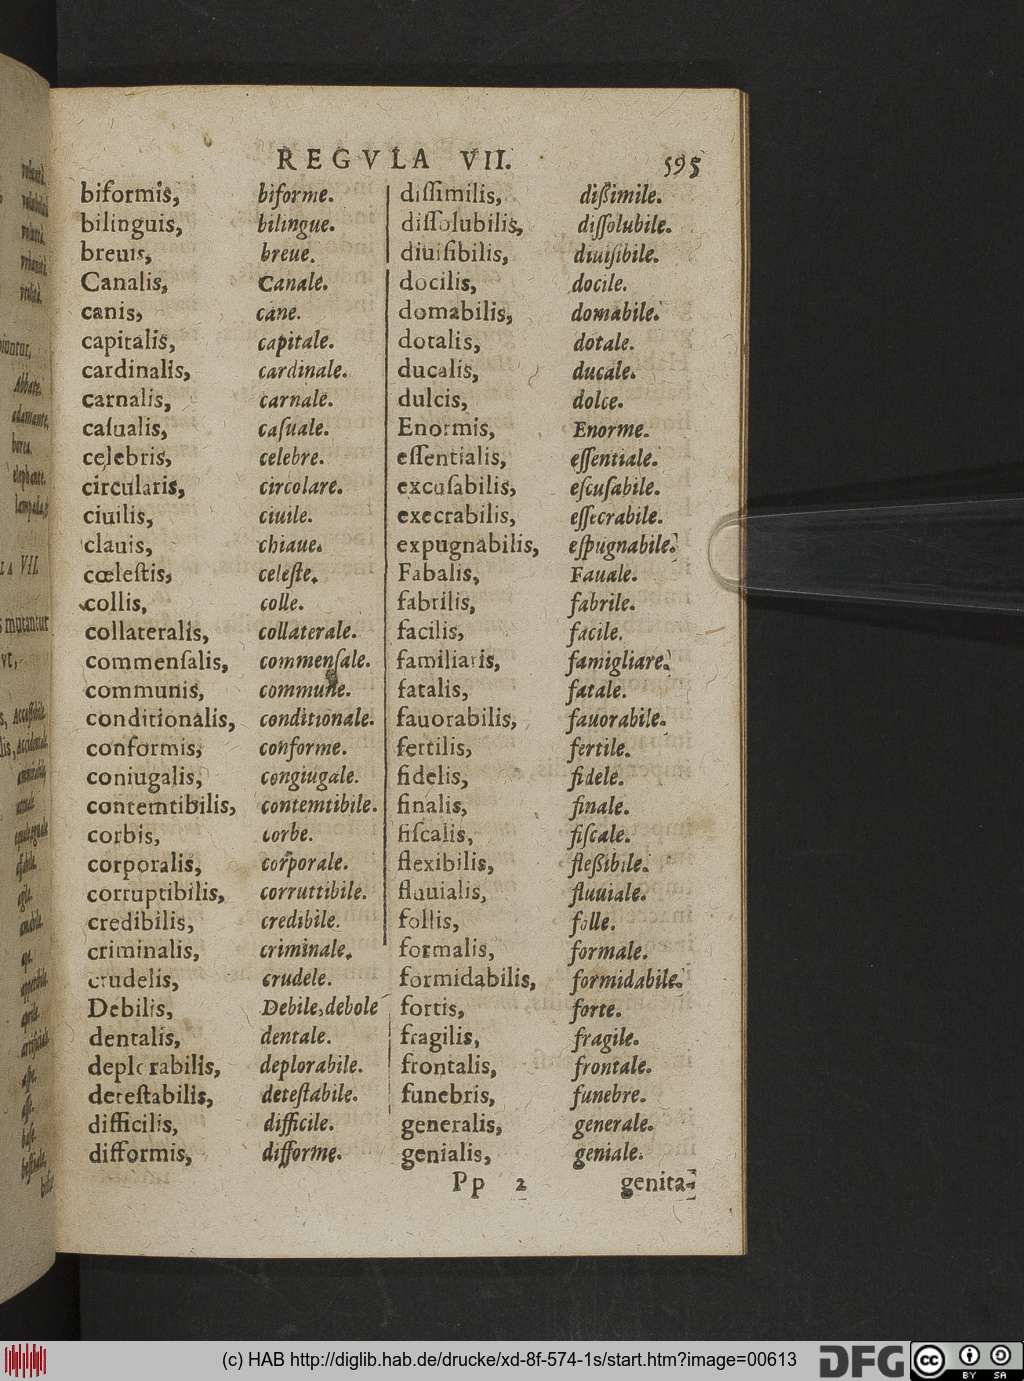 REGVLA VII. 595
biformis, biforme.
bilinguis, bilingue.
breuis, breue.
Canalis, Canale.
canis, cane.
capitalis, capitale.
cardinalis, cardinale.
carnalis, carnale.
caſualis, caſuale.
celebris, celebre.
circularis, circolare.
ciuilis, ciuile.
clauis, chiaue.
cœleſtis, celeſte.
collis, colle.
collateralis, collaterale.
commenſalis, commenſale.
communis, commune.
conditionalis, conditionale.
conformis, conforme.
coniugalis, congiugale.
contemtibilis, contemtibile.
corbis, corbe.
corporalis, corporale.
corruptibilis, corruttibile.
credibilis, credibile.
criminalis, criminale.
crudelis, crudele.
Debilis, Debile, debole
dentalis, dentale.
deplorabilis, deplorabile.
deteſtabilis, deteſtabile.
difficilis, difficile.
difformis, difforme.
diſſimilis, dißimile.
diſſolubilis, diſſolubile.
diuiſibilis, diuiſibile.
docilis, docile.
domabilis, domabile.
dotalis, dotale.
ducalis, ducale.
dulcis, dolce.
Enormis, Enorme.
eſſentialis, eſſentiale.
excuſabilis, eſcuſabile.
execrabilis, eſſecrabile.
expugnabilis, eſpugnabile.
Fabalis, Fauale.
fabrilis, fabrile.
facilis, facile.
familiaris, famigliare.
fatalis, fatale.
fauorabilis, fauorabile.
fertilis, fertile.
fidelis, fidele.
finalis, finale.
fiſcalis, fiſcale.
flexibilis, fleßibile.
fluuialis, fluuiale.
follis, folle.
formalis, formale.
formidabilis, formidabile.
fortis, forte.
fragilis, fragile.
frontalis, frontale.
funebris, funebre.
generalis, generale.
genialis, geniale.
Pp 2 genita-
(c) HAB http://diglib.hab.de/drucke/xd-8f-574-1s/start.htm?image=00613
DFG
cc BY SA